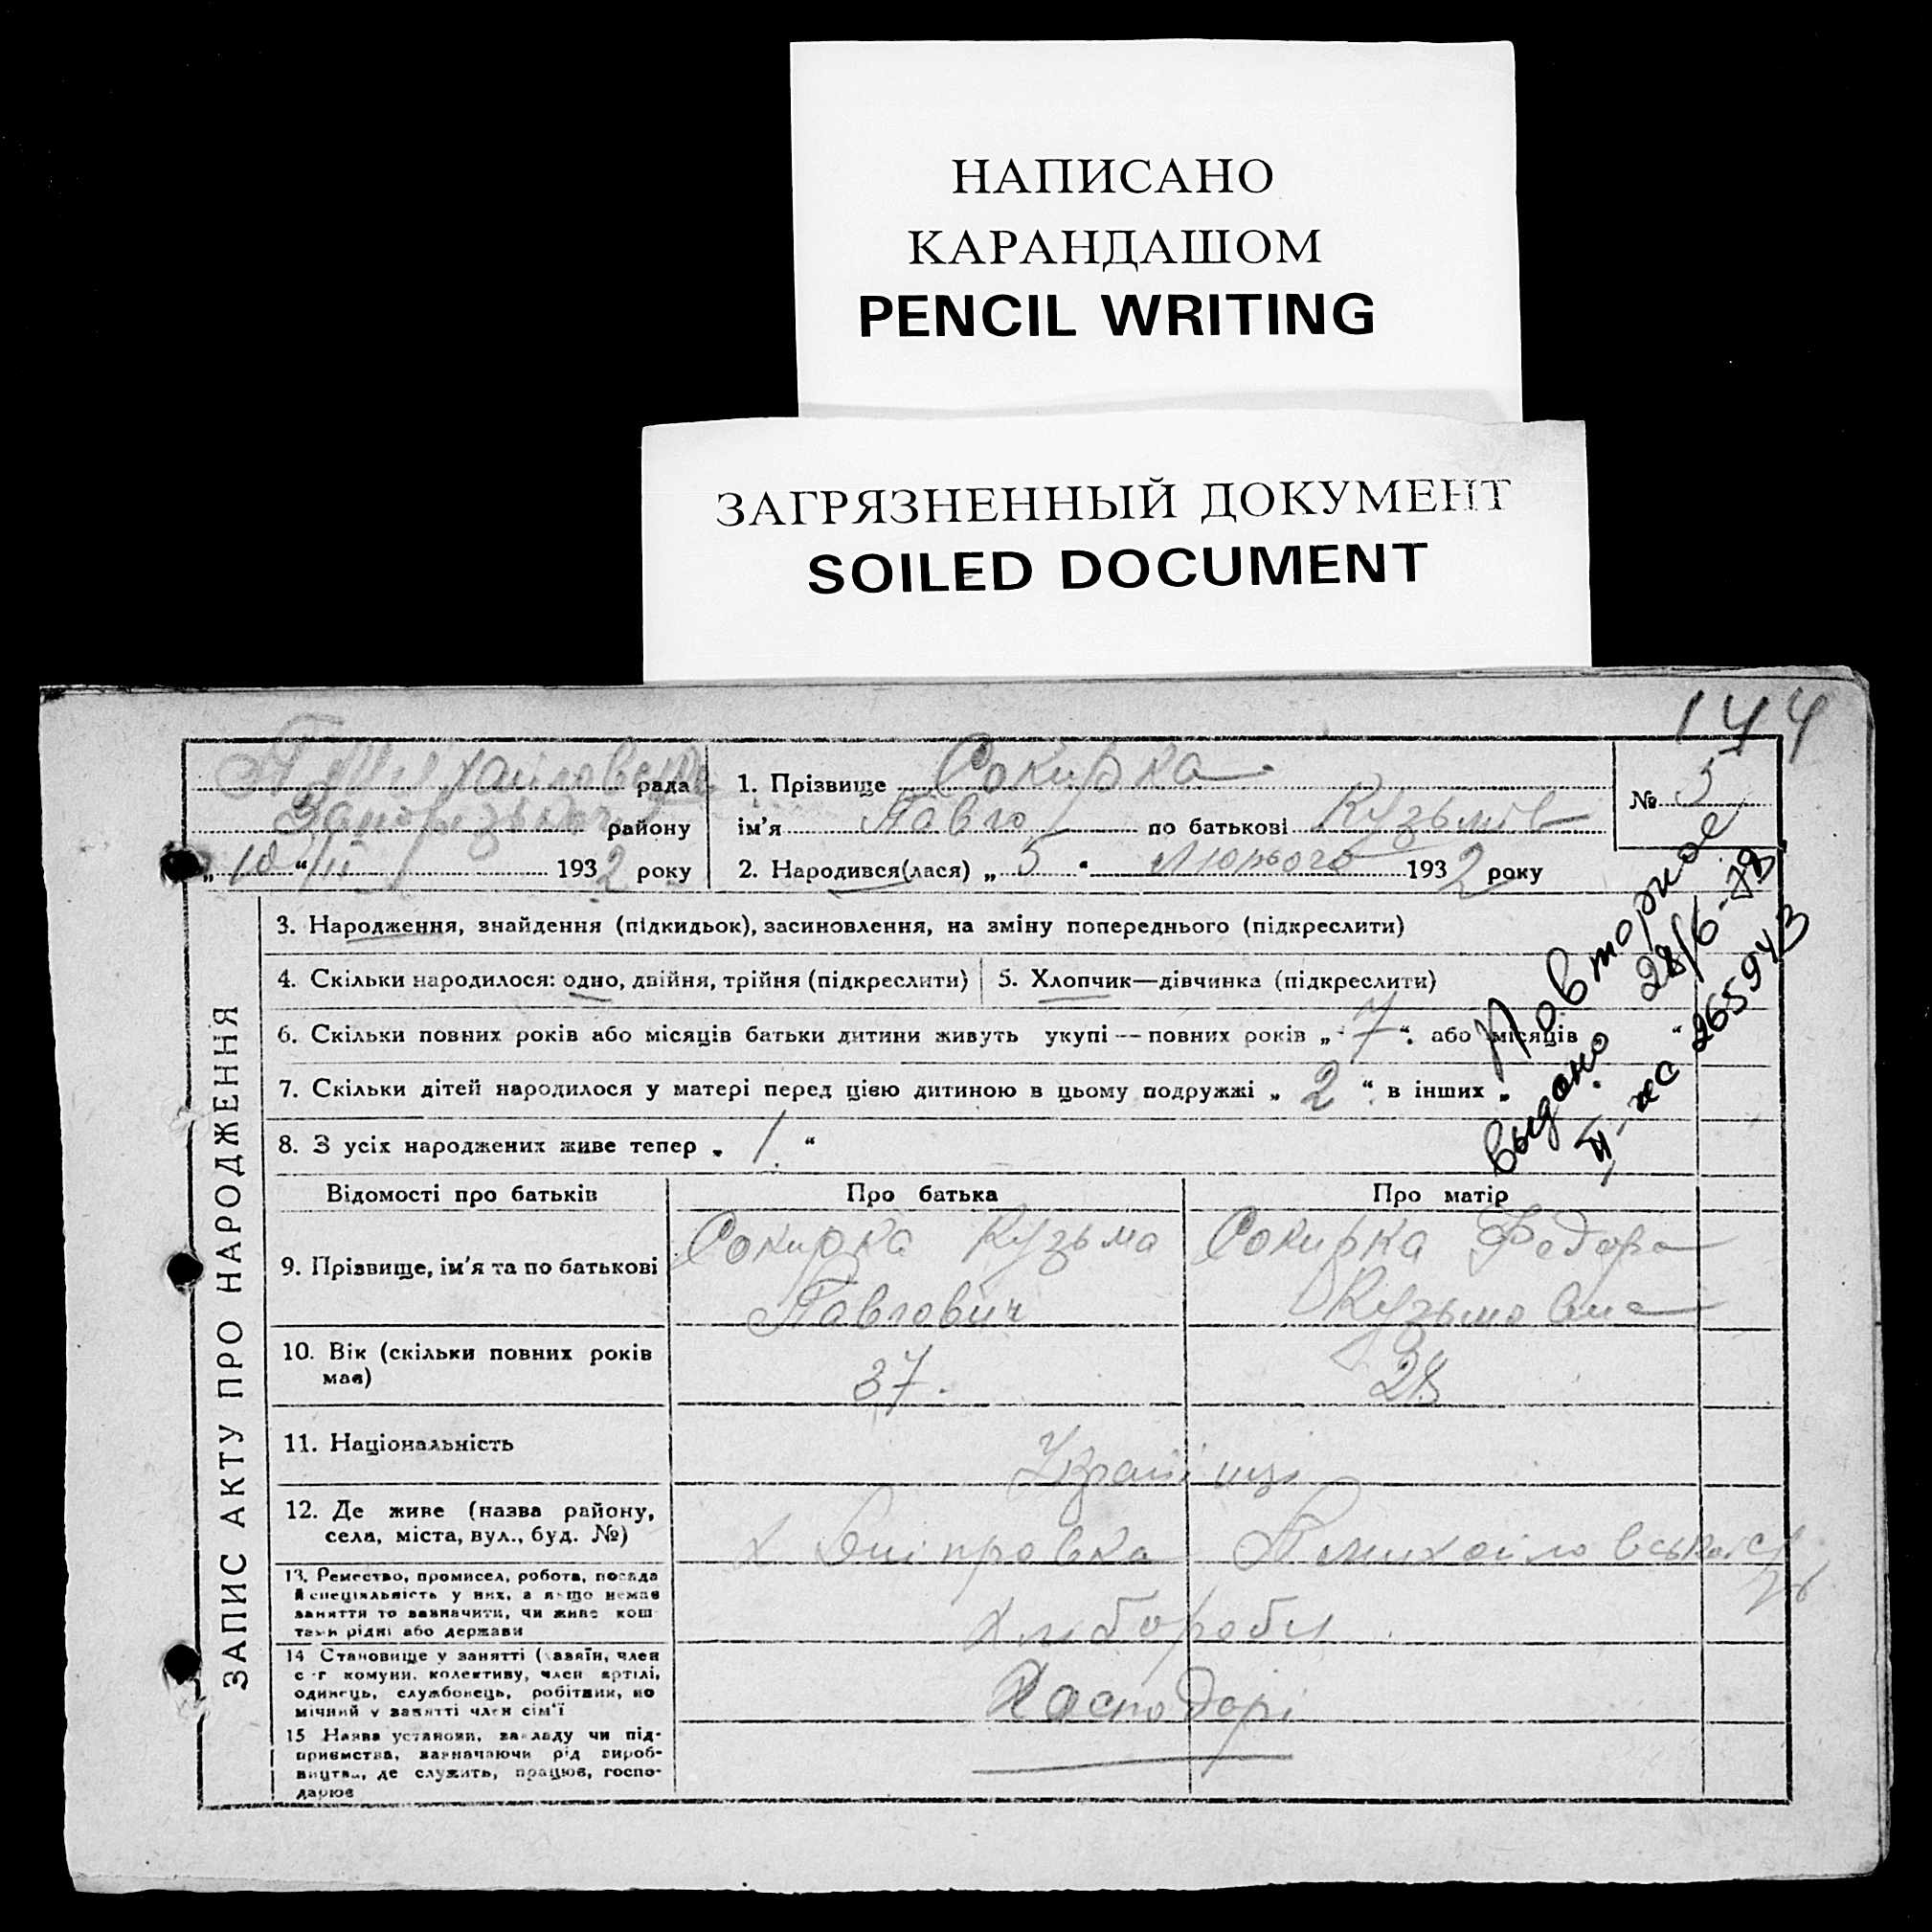 НАПИСАНО
КАРАНДАШОМ
PENCIL WRITING
ЗАГРЯЗНЕННЫЙ ДОКУМЕНТ
SOILED DOCUMENT
144
рада
району
„10“ III 1932 року
1. Прізвище Сокирка
ім'я Павло по батькові Кузьмів
2. Народився(лася) „5“ Лютого 1932 року
№ 5
ЗАПИС АКТУ ПРО НАРОДЖЕННЯ
3. Народження, знайдення (підкидьок), засиновлення, на зміну попереднього (підкреслити)
4. Скільки народилося: одно, двійня, трійня (підкреслити)
5. Хлопчик—дівчинка (підкреслити)
6. Скільки повних років або місяців батьки дитини живуть укупі — повних років „7“. або місяців “
7. Скільки дітей народилося у матері перед цією дитиною в цьому подружжі „2“. в інших „
8. З усіх народжених живе тепер „1“
Повторное
выдано 28/6-78
II-жс 265943
Відомості про батьків
Про батька
Про матір
9. Прізвище, ім'я та по батькові
Сокирка Кузьма
Павлович
Сокирка Федора
Кузьмовна
10. Вік (скільки повних років
має)
37.
28
11. Національність
Українці
12. Де живе (назва району,
села, міста, вул., буд. №)
х Дніпровка
13. Ремество, промисел, робота, посада
й спеціяльність у них, а якщо немає
заняття то зазначити, чи живе кош-
тами рідні або держави
Хлібороби
14 Становище у занятті (хазяїн, член
с-г комуни, колективу, член артілі,
одинець, службовець, робітник, по
мічний у занятті член сім'ї
Хасподарі
15 Назва установи, закладу чи під-
приємства, зазначаючи рід вироб-
ництва, де служить, працює, госпо-
дарює